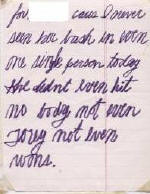 for caus I never
seen her bash in even
one single person today
She didn't even hit
no body not even
not even